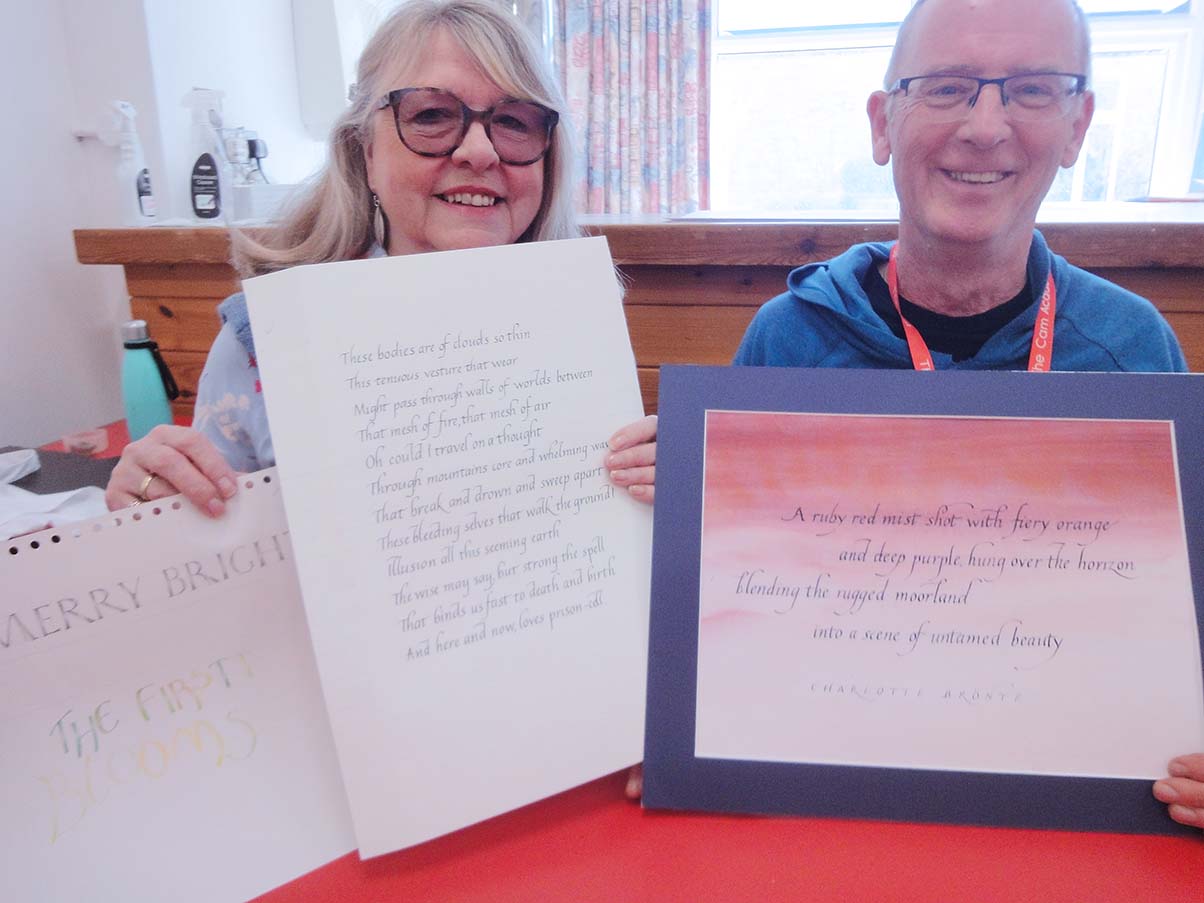 MERRY BRIGHT
THE FIRST
BLOOMS
These bodies are of clouds so thin
This tenuous vesture that wear
Might pass through walls of worlds between
That mesh of fire, that mesh of air
Oh could I travel on a thought
Through mountains core and whelming wav
That break and drown and sweep apart
These bleeding selves that walk the ground!
Illusion all this seeming earth
The wise may say, but strong the spell
That binds us fast to death and birth
And here and now, loves prison-cell.
A ruby red mist shot with fiery orange
and deep purple, hung over the horizon
blending the rugged moorland
into a scene of untamed beauty
CHARLOTTE BRONTË
The Cam Aca